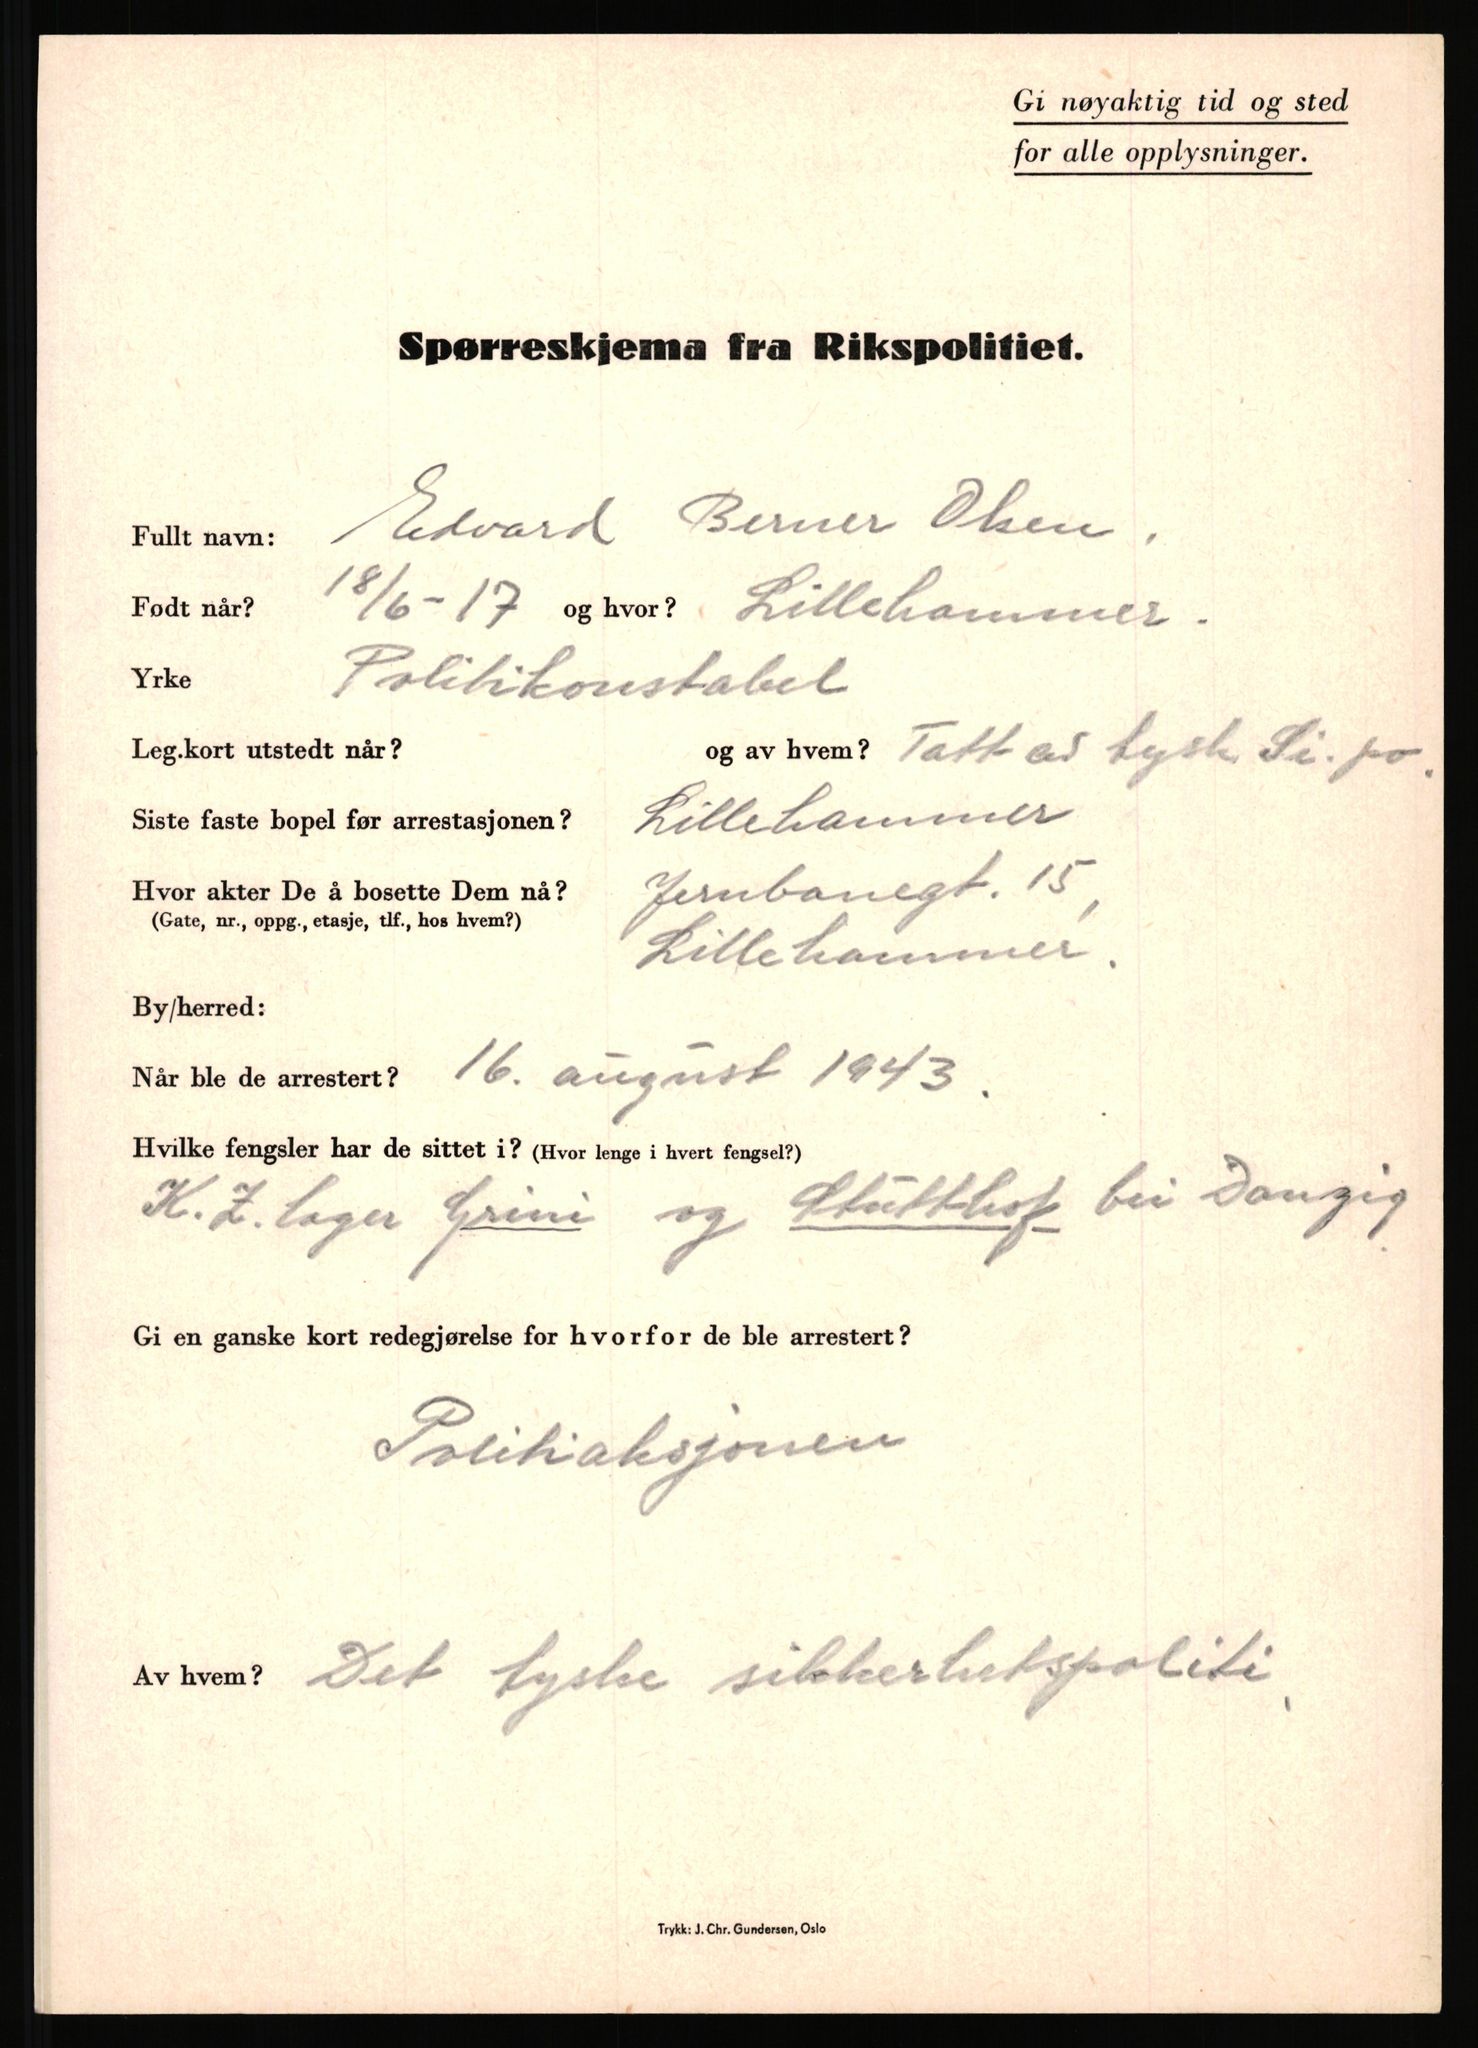 Gi nøyaktig tid og sted
for alle opplysninger.
Spørreskjema fra Rikspolitiet.
Fullt navn: Edvard Berner Olsen.
Født når? 18/6-17 og hvor? Lillehammer.
Yrke Politikonstabel
Leg.kort utstedt når? og av hvem? Tatt av tysk Si.po.
Siste faste bopel før arrestasjonen? Lillehammer
Hvor akter De å bosette Dem nå? Jernbanegt. 15,
(Gate, nr., oppg., etasje, tlf., hos hvem?)
Lillehammer.
By/herred:
Når ble de arrestert? 16. august 1943.
Hvilke fengsler har de sittet i? (Hvor lenge i hvert fengsel?)
K.Z. lager Grini og Stutthof bei Danzig.
Gi en ganske kort redegjørelse for hvorfor de ble arrestert?
Politiaksjonen
Av hvem? Det tyske sikkerhetspoliti.
Trykk: J. Chr. Gundersen, Oslo